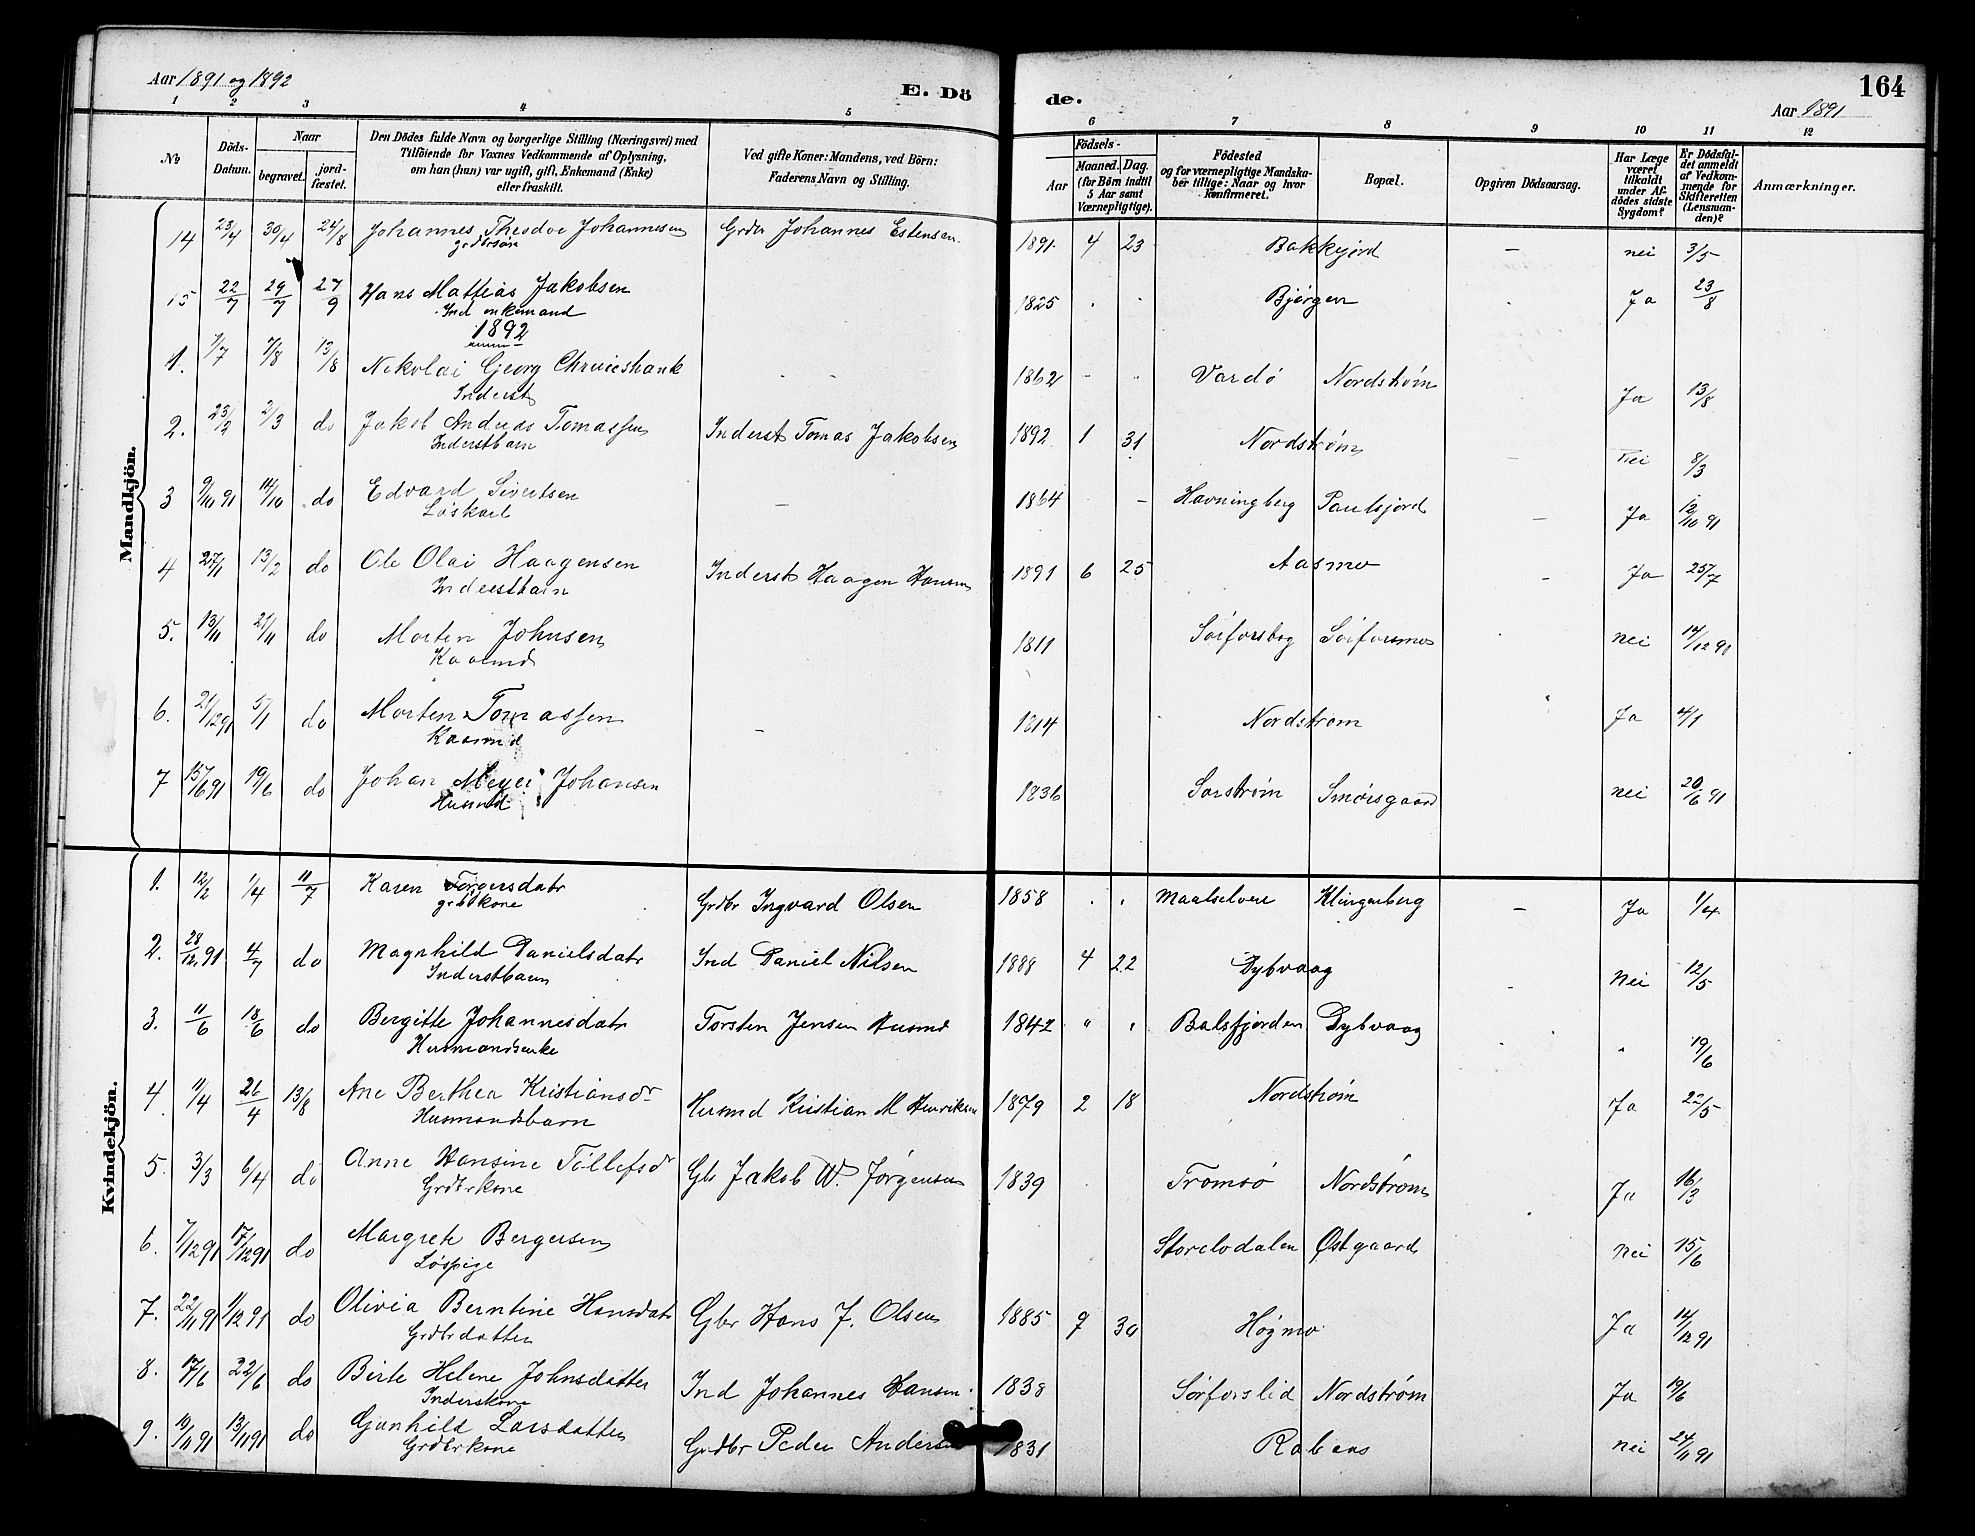 Aar 1891 og 1892
E. Dö
de.
164
Aar 1891
1 2 3 4 5 6 7 8 9 10 11 12
No
Döds-Datum.
Naar
begravet.
jord-fæstet.
Den Dödes fulde Navn og borgerlige Stilling (Næringsvei) med
Tilföiende for Voxnes Vedkommende af Oplysning,
om han (hun) var ugift, gift, Enkemand (Enke)
eller fraskilt.
Ved gifte Koner: Mandens, ved Börn:
Faderens Navn og Stilling.
Födsels-
Aar
Maaned.
Dag.
(for Börn indtil
5 Aar samt
Værnepligtige).
Födested
og for værnepligtige Mandska-
ber tillige: Naar og hvor
konfirmeret.
Bopæl.
Opgiven Dödsaarsag.
Har Læge
været
tilkaldt
under Af-
dödes sidste
Sygdom?
Er Dödsfal-
det anmeldt
af Vedkom-
mende for
Skifteretten
(Lensman-
den)?
Anmærkninger.
Mandkjön.
14 23/4 30/4 24/8 Johannes Theodor Johannesen Grdbr Johannes Estensen 1891 4 23 Bakkejord – nei 3/5
grdbrsøn
15 22/7 29/7 27/9 Hans Mattias Jakobsen 1825 Bjørgen Ja 23/8
Ind enkemand
1892
1. 1/7 7/8 13/8 Nikolai Georg 1862 Vardö Nordstrøm Ja 13/8
Inderst
2. 23/2 2/3 do Jakob Andreas Tomassen Inderst Tomas Jakobsen 1892 1 31 Nordstrøm Nei 8/3
Inderstbarn
3 9/10 91 14/10 do Edvard Sivertsen – 1864 – Havningberg – Ja 12/10 91
Løskarl
4 27/1 13/2 do Ole Olai Haagensen Inderst Haagen Hansen 1891 6 25 Aasmo – Ja 25/7
Inderstbarn
5. 13/11 21/11 do Morten Johnsen 1811 Sørforsbog Sørforsmo nei 14/12 91
Kaarmd
6. 21/12 91 5/1 do Morten Tomassen – 1814 Nordstrøm Ja 4/1
Kaarmd
7 15/6 91 19/6 do Johan Meyer Johansen 1836 Sørstrøm Smørsgaard nei 20/6 91
Husmd
Kvindekjön.
1. 12/2 1/4 11/7 Karen Torgersdatr Grdbr Ingvard Olsen 1858 Maalselven Klingenberg – Ja 1/4
grdbkone
2. 28/12 91 4/7 do Magnhild Danielsdatr Ind Daniel Nilsen 1888 4 22 Dybvaag Nei 12/5
Inderstbarn
3. 11/6 18/6 do Bergitte Johannesdatr Torsten Jensen Husmd 1842 " Balsfjorden Dybvaag " 19/6
Husmandsenke
4. 11/4 26/4 13/8 Ane Berthea Kristiansdr Husmd Kristian M Henriksen 1879 2 18 Nordstrøm Ja 22/5
Husmandsbarn
5. 3/3 6/4 do Anne Hansine Tollefsdr Gbr Jakob W. Jørgensen 1839 Tromsö Nordstrøm Ja 16/3
Grdbrkone
6. 7/12 91 17/12 91 do Margrete Bergersen Storelvdalen Østgaard nei 15/6
Løspige
7. 22/11 91 1/12 91 do Olivia Berntine Hansdatr Gbr Hans J. Olsen 1885 9 30 Høgmo Ja 14/12 91
Grdbrdatter
8. 17/6 22/6 do Birte Helene Johnsdatter Ind Johannes Hansen 1838 Sørforslid Nordstrøm Ja 19/6
Inderskone
9. 10/11 91 13/11 91 do Gunhild Larsdatter Grdbr Peder Andersen 1831 nei 24/11 91
Grdbrkone